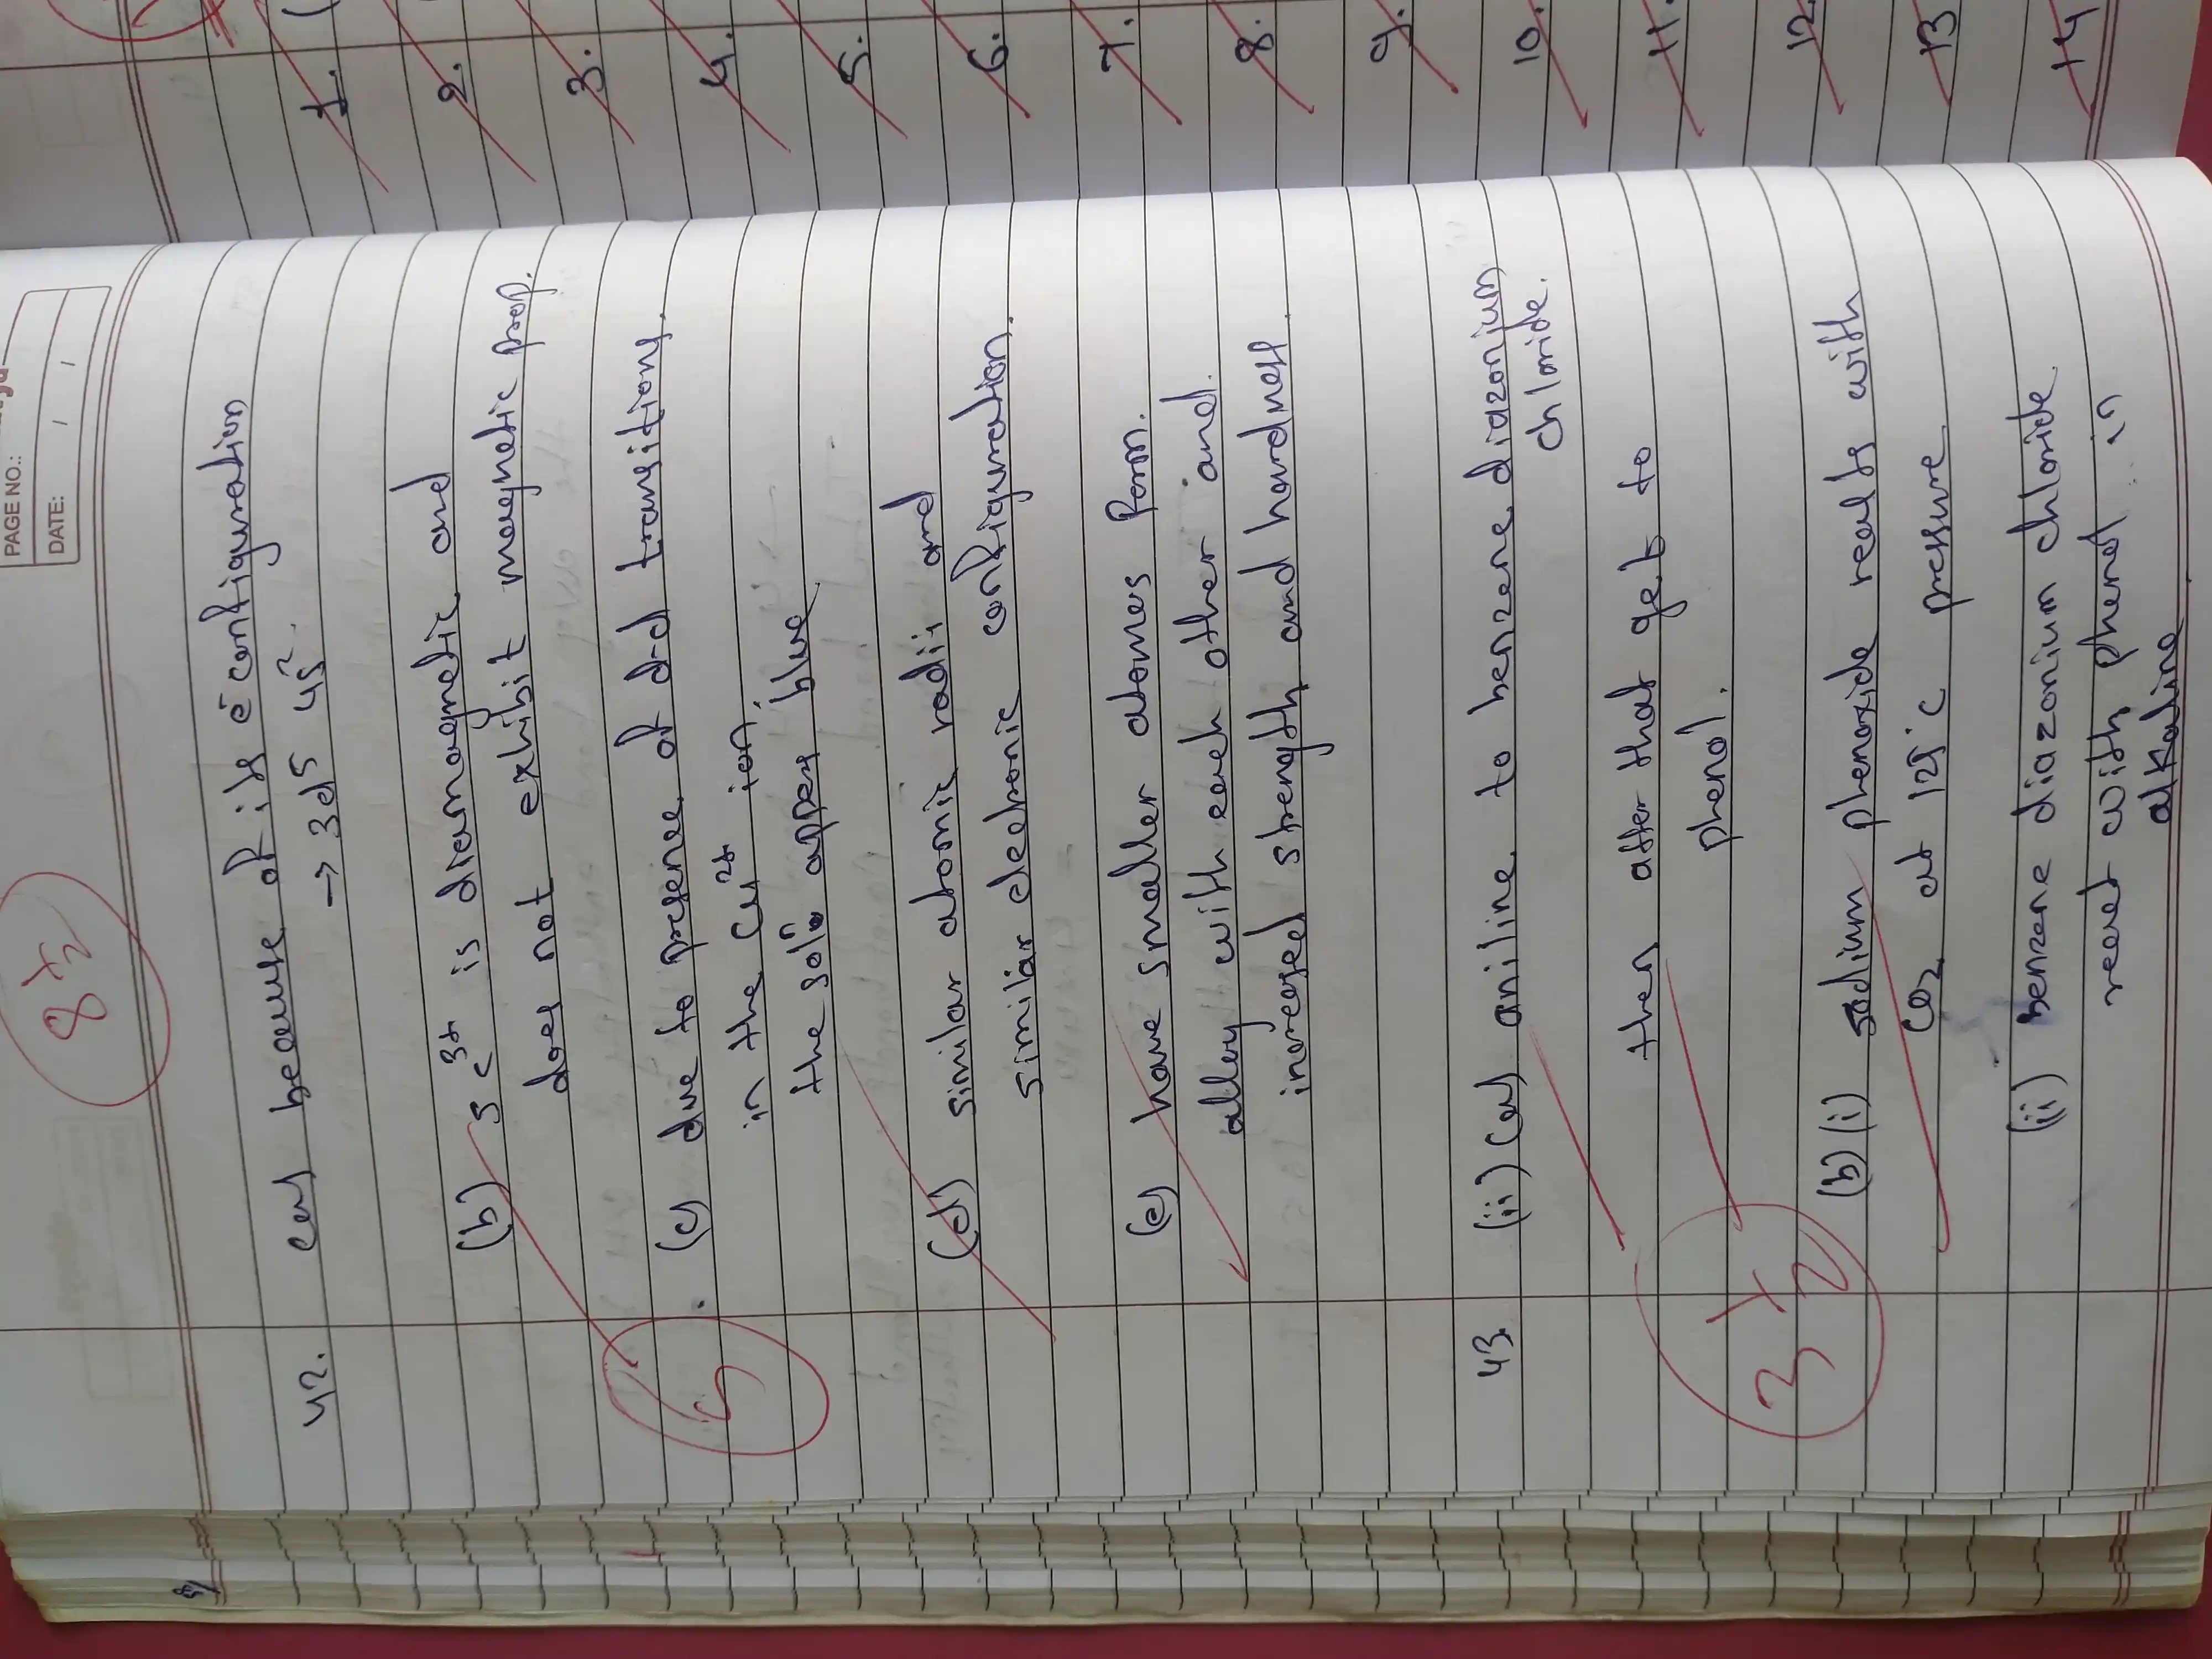 PAGE NO.:
DATE: / /
8 1/2
42. (a) because of its e⁻ configuration
→ 3d5 4s²
(b) Sc³⁺ is diamagnetic and
does not exhibit magnetic prop.
(c) due to presence of d-d transitions
in the Cu²⁺ ion,
the solⁿ appears blue
5
(d) similar atomic radii and
similar electronic configuration.
(e) have smaller atomes form
alloy with each other and
increased strength and hardness
43. (ii) (a) aniline to benzene diazonium
chloride.
then after that get to
phenol.
3 1/2
(b) (i) sodium phenoxide reacts with
CO₂ at 125°c pressure
(ii) benzene diazonium chloride
react with phenol in
alkaline
1.
2.
3.
4.
5.
6.
7.
8.
9.
10.
11.
12.
13
14